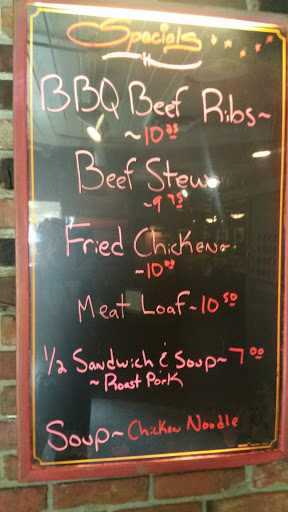 Specials
BBQ Beef Ribs~
~10.25
Beef Stew
~9.75
Fried Chicken~
~10.00
Meat Loaf~10.50
1/2 Sandwich & Soup~7.00
~Roast Pork
Soup~Chicken Noodle